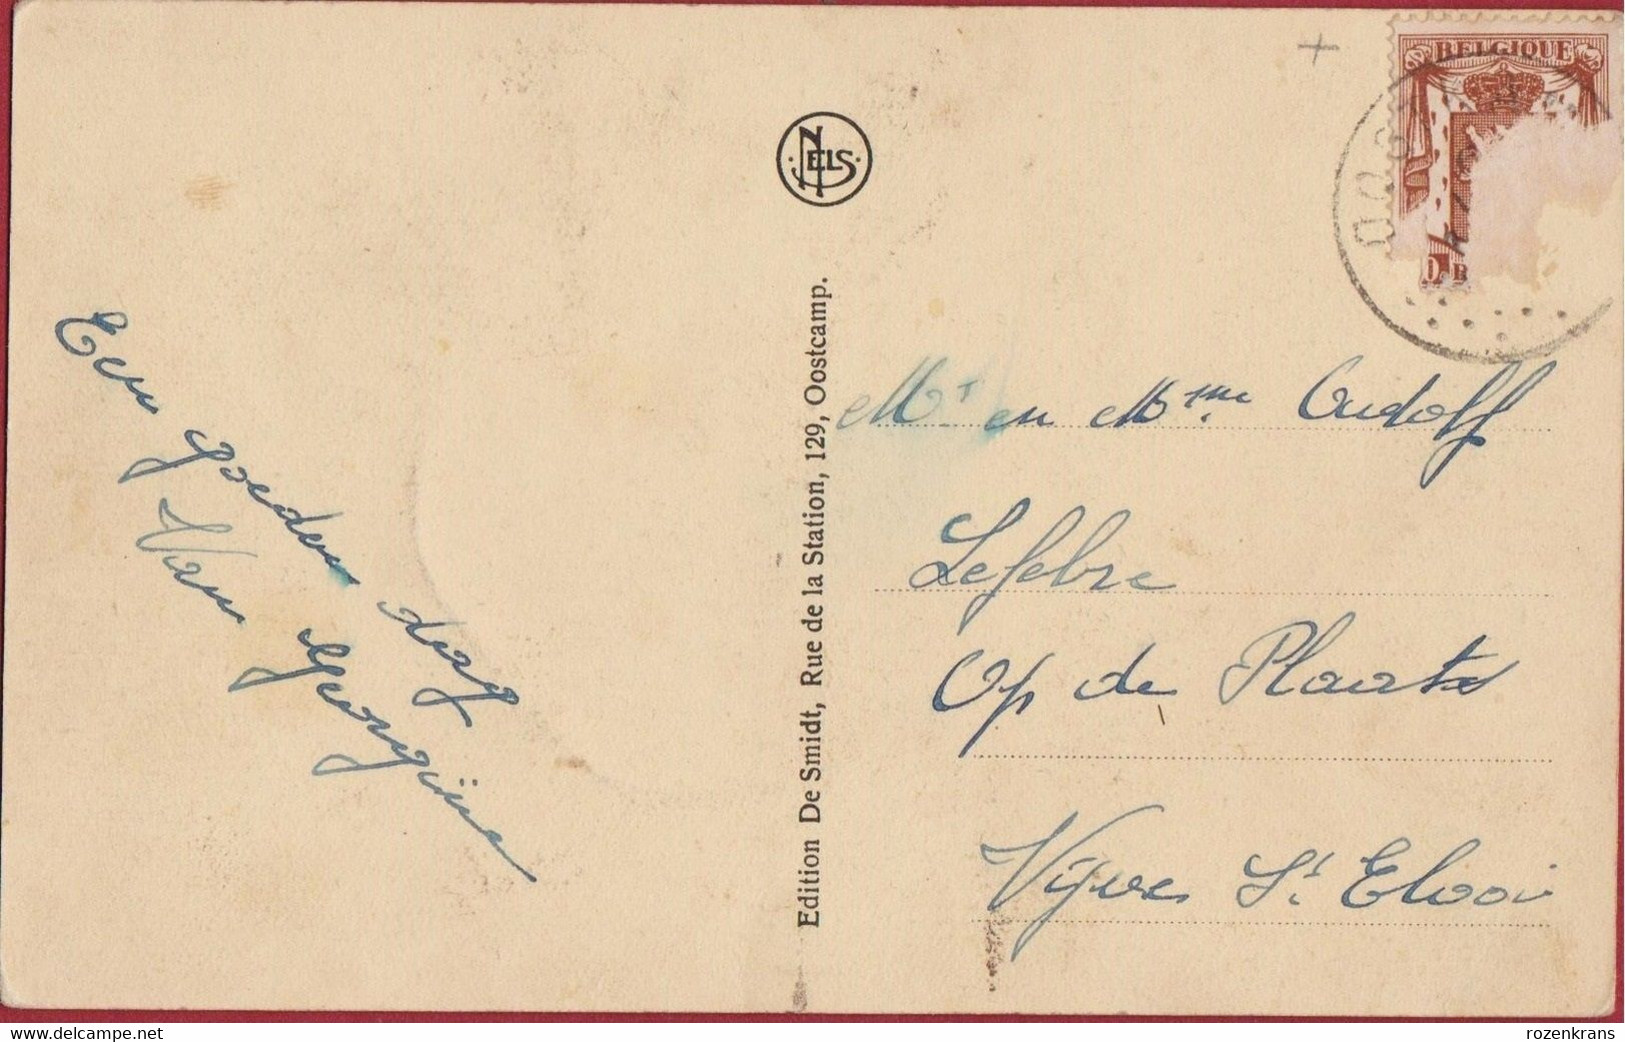 Een goeden dag
Van Georgine
NELS
Edition De Smidt, Rue de la Station, 129, Oostcamp.
BELGIQUE
Mr en Mme Oudolf
Lefebre
Op de Plaats
Vijve St Elooi
delcampe.net
rozenkrans